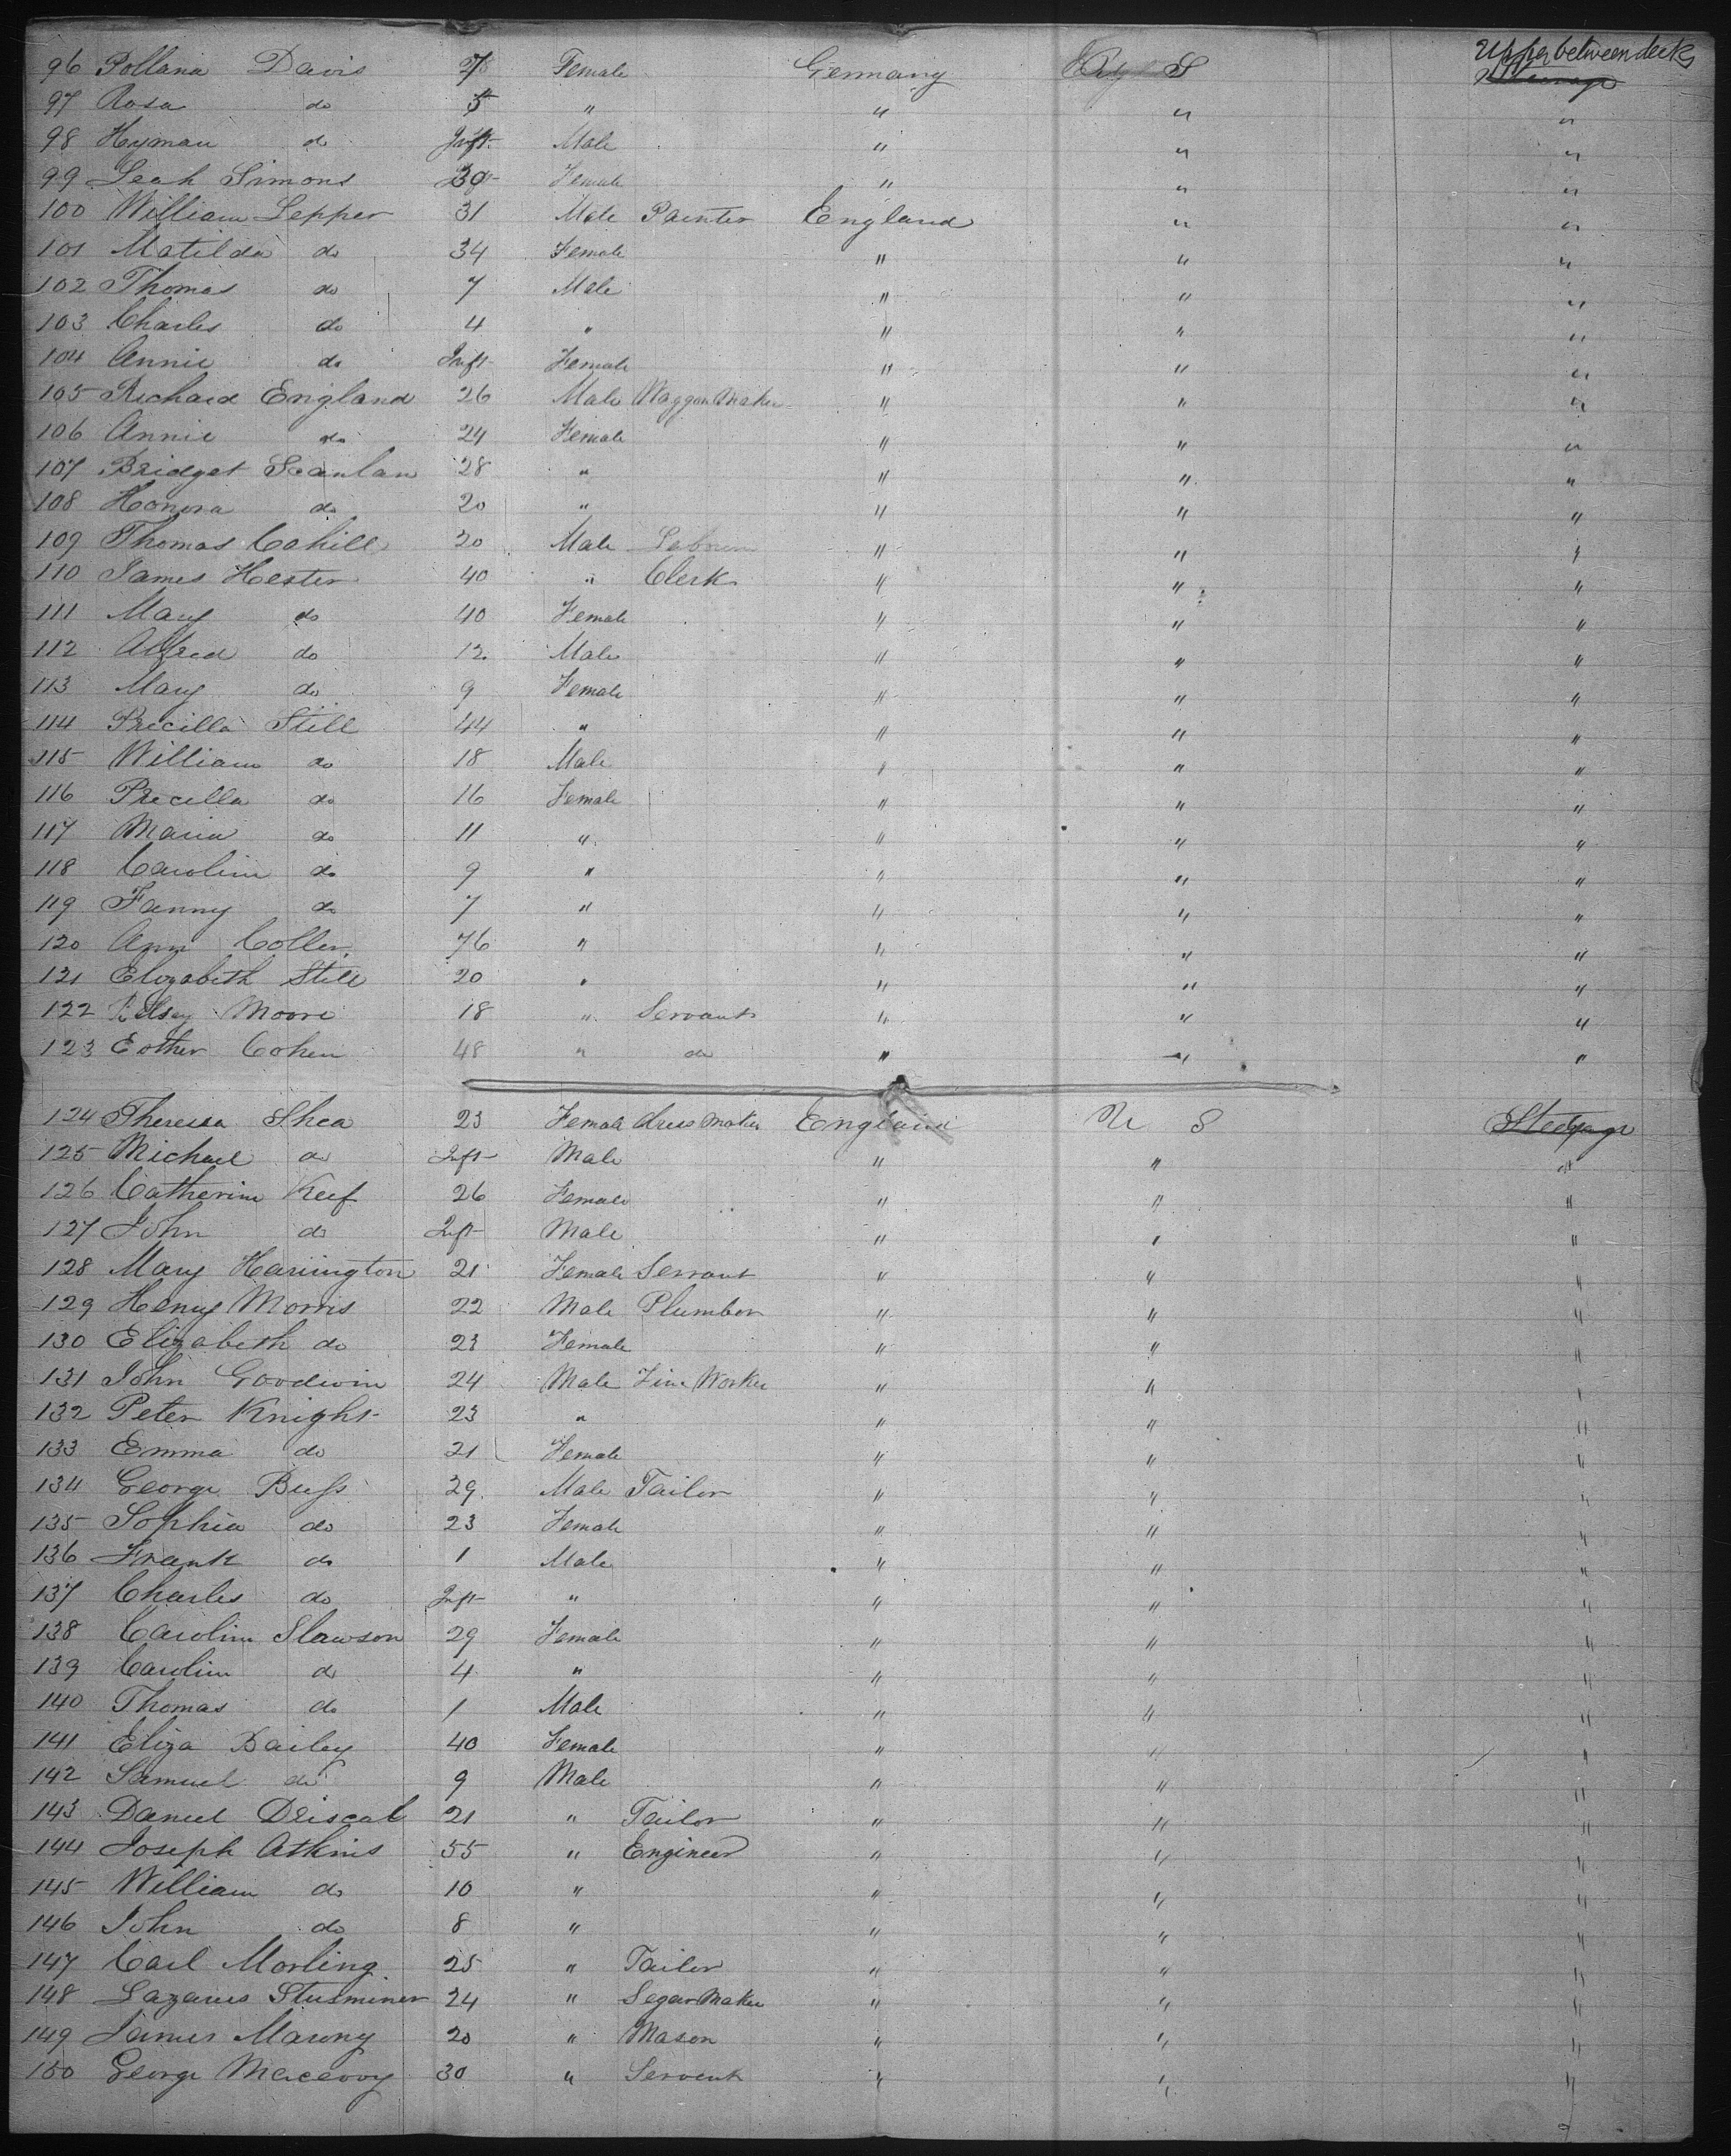 96 Pollana Davis 28 Female Germany S Upper between decks
97 Rosa do 5 " " " "
98 Hyman do Inft Male " " "
99 Leah Simons 30 Female " " "
100 William Lepper 31 Male Painter England " "
101 Matilda do 34 Female " " "
102 Thomas do 7 Male " " "
103 Charles do 4 " " " "
104 Annie do Inft Female " " "
105 Richard England 26 Male Waggon Maker " " "
106 Annie do 24 Female " " "
107 Bridget Scanlan 28 " " " "
108 Honora do 20 " " " "
109 Thomas Cahill 20 Male Labourer " " "
110 James Hester 40 " Clerk " " "
111 Mary do 40 Female " " "
112 Alfred do 12 Male " " "
113 Mary do 9 Female " " "
114 Precilla Still 44 " " " "
115 William do 18 Male " " "
116 Precilla do 16 Female " " "
117 Maria do 11 " " " "
118 Carolin do 9 " " " "
119 Fanny do 7 " " " "
120 Ann Coller 76 " " " "
121 Elizabeth Still 20 " " " "
122 Moore 18 " Servant " " "
123 Esther Cohen 48 " do " " "
124 Theresa Shea 23 Female dress maker England U S Steerage
125 Michael do Inft Male " " "
126 Catherine Keef 26 Female " " "
127 John do Inft Male " " "
128 Mary Harrington 21 Female Servant " " "
129 Henry Morris 22 Male Plumber " " "
130 Elizabeth do 23 Female " " "
131 John Goodwin 24 Male Zinc Worker " " "
132 Peter Knight 23 " " " "
133 Emma do 21 Female " " "
134 George Buss 29 Male Tailor " " "
135 Sophia do 23 Female " " "
136 Frank do 1 Male " " "
137 Charles do Inft " " " "
138 Carolin Slawson 29 Female " " "
139 Carolin do 4 " " " "
140 Thomas do 1 Male " " "
141 Eliza Bailey 40 Female " " "
142 Samuel do 9 Male " " "
143 Daniel Driscol 21 " Tailor " " "
144 Joseph Atkins 55 " Engineer " " "
145 William do 10 " " " "
146 John do 8 " " " "
147 Carl Morling 25 " Tailor " " "
148 Lazarus Stusminer 24 " Segar Maker " " "
149 James Marony 20 " Mason " " "
150 George Macevoy 30 " Servent " " "